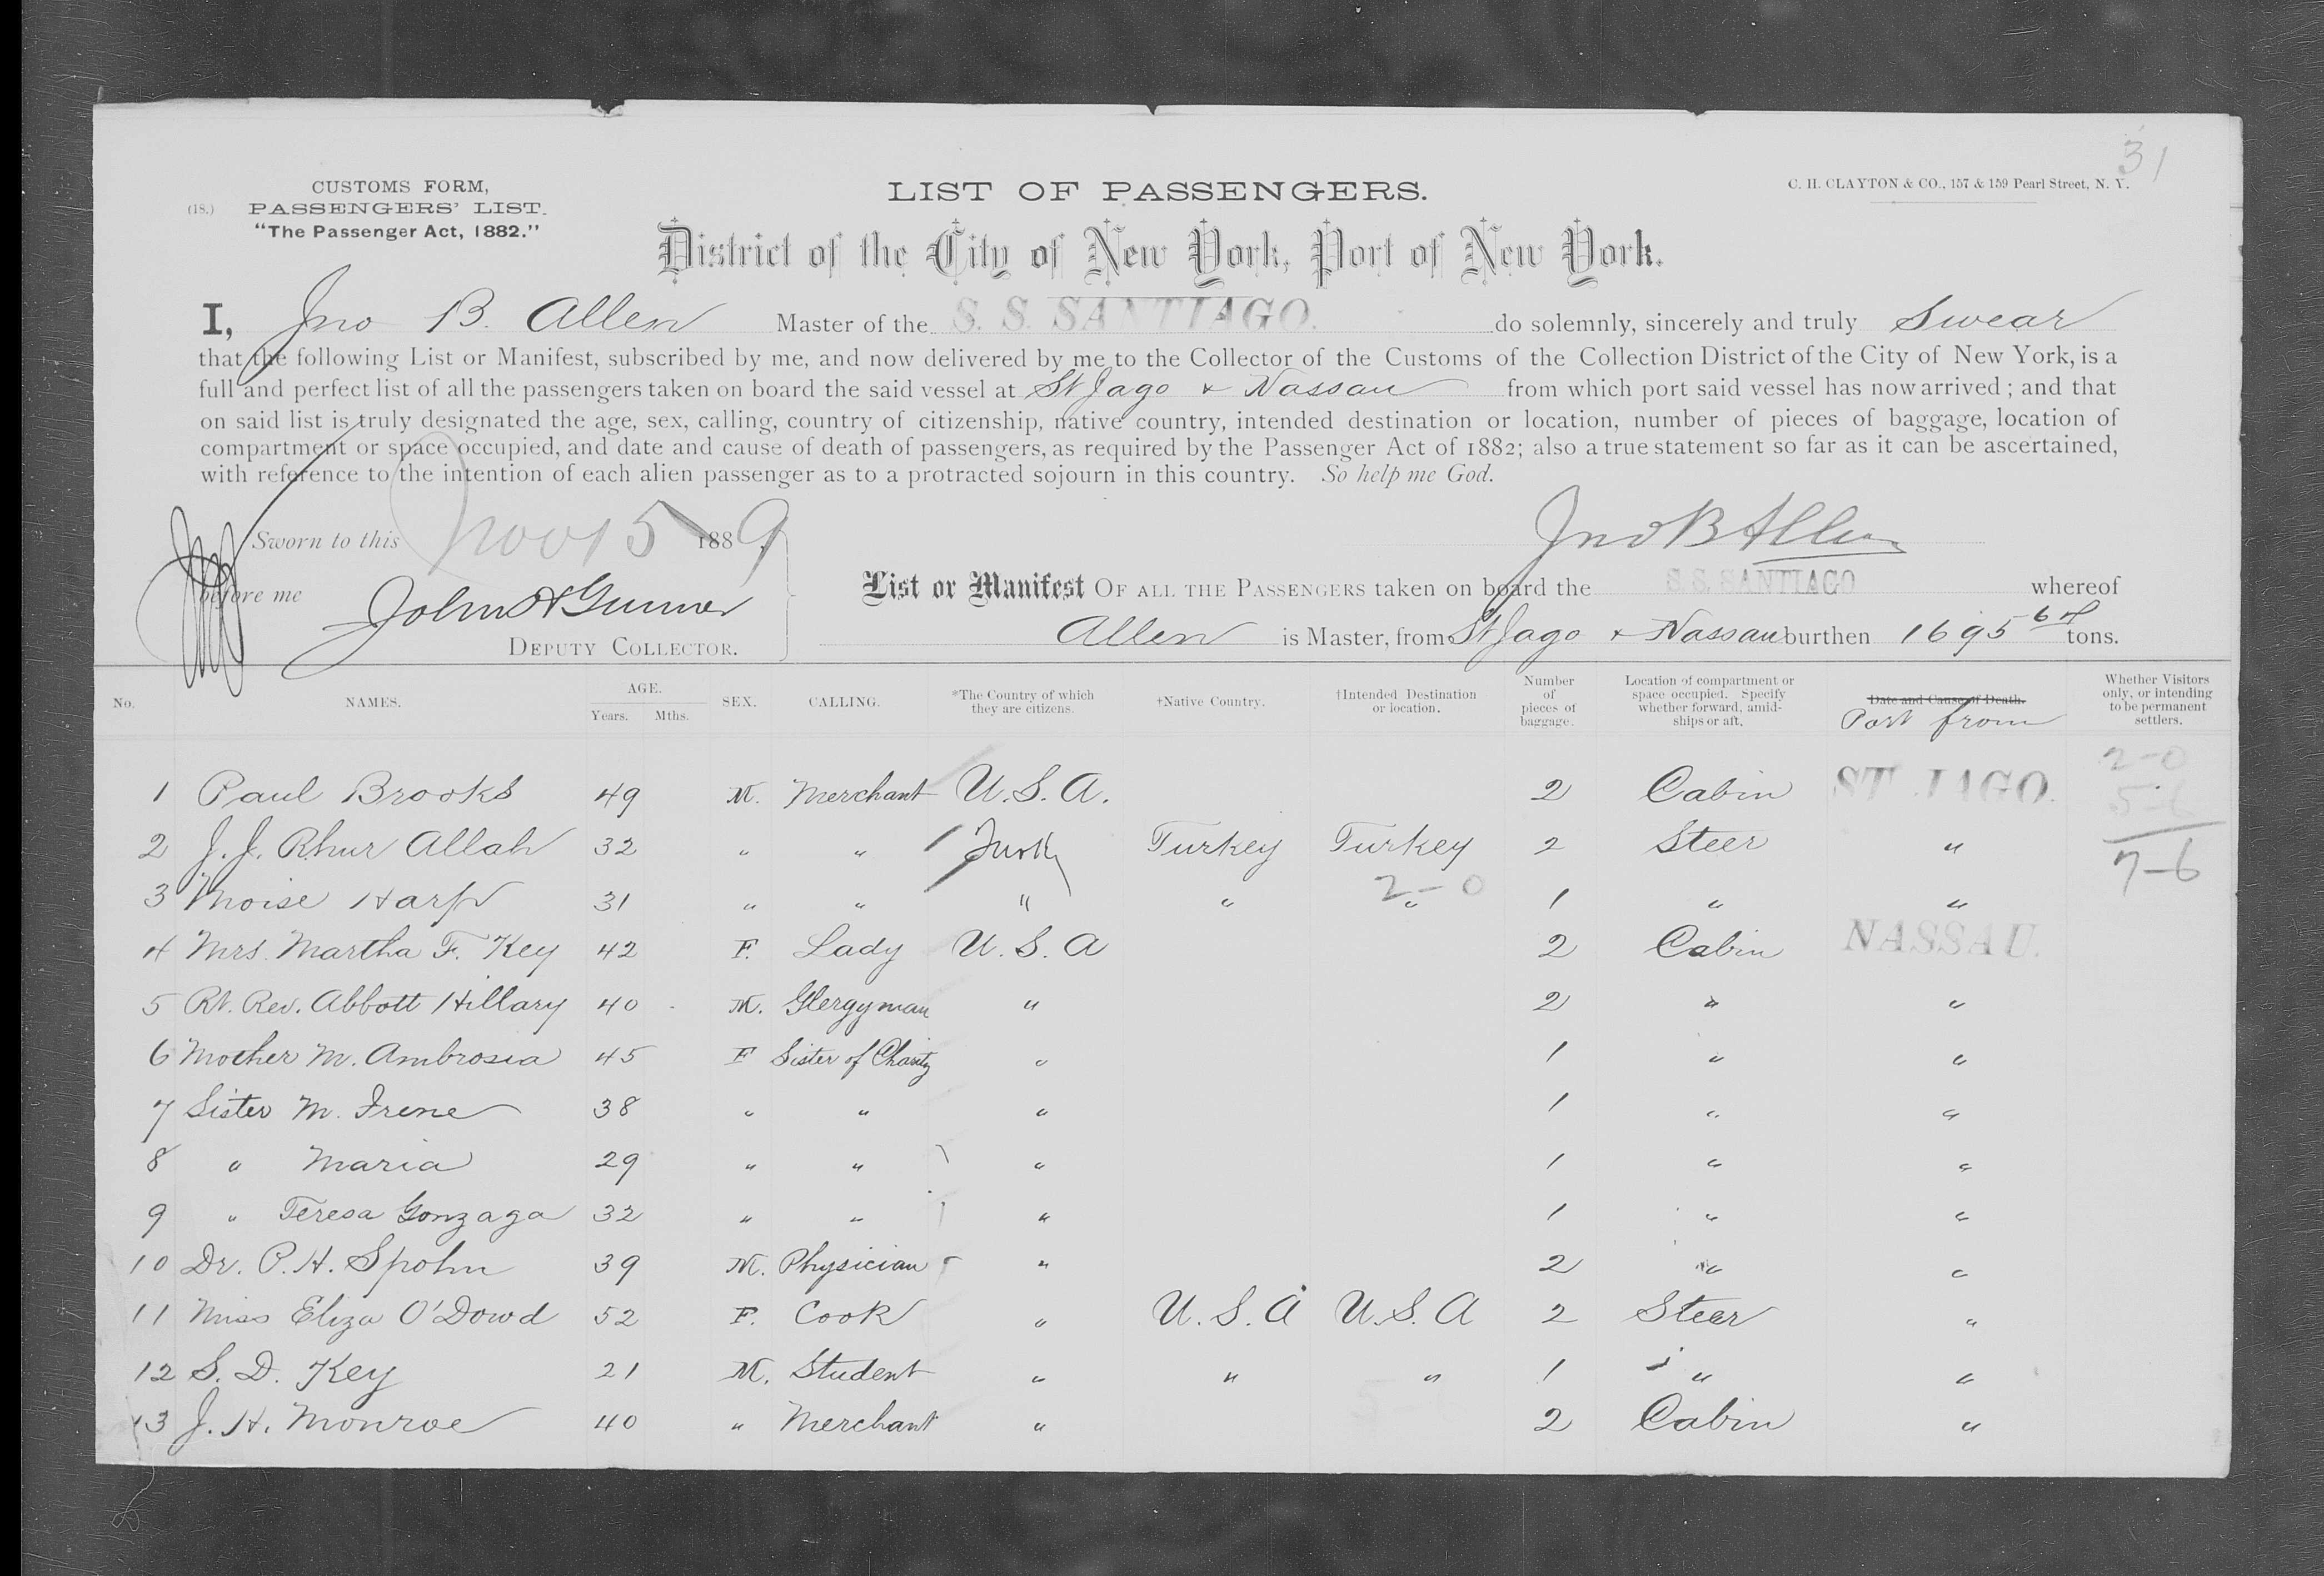 31
CUSTOMS FORM,
(18.) PASSENGERS' LIST.
"The Passenger Act, 1882."
LIST OF PASSENGERS.
C. H. CLAYTON & CO., 157 & 159 Pearl Street, N. Y.
District of the City of New York, Port of New York.
I, Jno B. Allen Master of the S. S. SANTIAGO. do solemnly, sincerely and truly Swear
that the following List or Manifest, subscribed by me, and now delivered by me to the Collector of the Customs of the Collection District of the City of New York, is a
full and perfect list of all the passengers taken on board the said vessel at St Jago & Nassau from which port said vessel has now arrived; and that
on said list is truly designated the age, sex, calling, country of citizenship, native country, intended destination or location, number of pieces of baggage, location of
compartment or space occupied, and date and cause of death of passengers, as required by the Passenger Act of 1882; also a true statement so far as it can be ascertained,
with reference to the intention of each alien passenger as to a protracted sojourn in this country. So help me God.
Sworn to this Nov 15 1889
Jno B Allen
before me
DEPUTY COLLECTOR.
List or Manifest OF ALL THE PASSENGERS taken on board the S.S. SANTIAGO whereof
Allen is Master, from St Jago & Nassau burthen 1695 tons.
No. NAMES. AGE. Years. Mths. SEX. CALLING. *The Country of which they are citizens. †Native Country. †Intended Destination or location. Number of pieces of baggage. Location of compartment or space occupied. Specify whether forward, amidships or aft. Date and Cause of Death. Port from Whether Visitors only, or intending to be permanent settlers.
1 Paul Brooks 49 M. Merchant U.S.A. 2 Cabin ST. JAGO. 2-0
5-6
2 J. J. Rhur Allah 32 " " Turk Turkey Turkey 2 Steer " 7-6
3 Moise Harp 31 " " " " 2-0 " 1 " "
4 Mrs. Martha F. Key 42 F. Lady U.S.A 2 Cabin NASSAU.
5 Rt. Rev. Abbott Hillary 40 M. Clergyman " 2 " "
6 Mother M. Ambrosia 45 F Sister of Charity " 1 " "
7 Sister M. Irene 38 " " " 1 " "
8 " Maria 29 " " " 1 " "
9 " Teresa Gonzaga 32 " " " 1 " "
10 Dr. P. H. Spohn 39 M. Physician " 2 " "
11 Miss Eliza O'Dowd 52 F. Cook " U.S.A U.S.A 2 Steer "
12 S. D. Key 21 M. Student " " " 1 " "
13 J. H. Monroe 40 " Merchant " 2 Cabin "